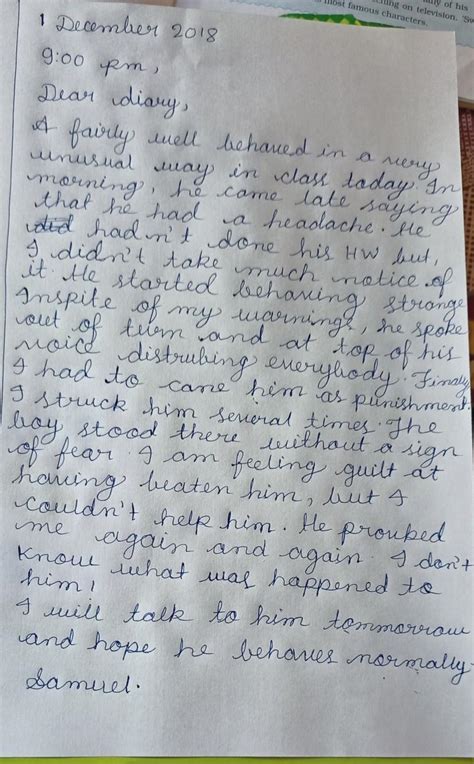 most famous characters.
on television.
of his
1 December 2018
9:00 pm,
Dear diary,
A fairly well behaved in a very
unusual way in class today. In
morning, he came late saying
that he had a headache. He
did hadn't done his HW but,
I didn't take much notice of
it. He started behaving strange
Inspite of my warnings, he spoke
out of turn and at top of his
voice distrubing everybody. Finaly
I had to cane him as punishment
I struck him several times. The
boy stood there without a sign
of fear. I am feeling guilt at
having beaten him, but I
couldn't help him. He prouked
me again and again. I don't
know what was happened to
him,
I will talk to him tommorrow
and hope he behaves normally.
Samuel.